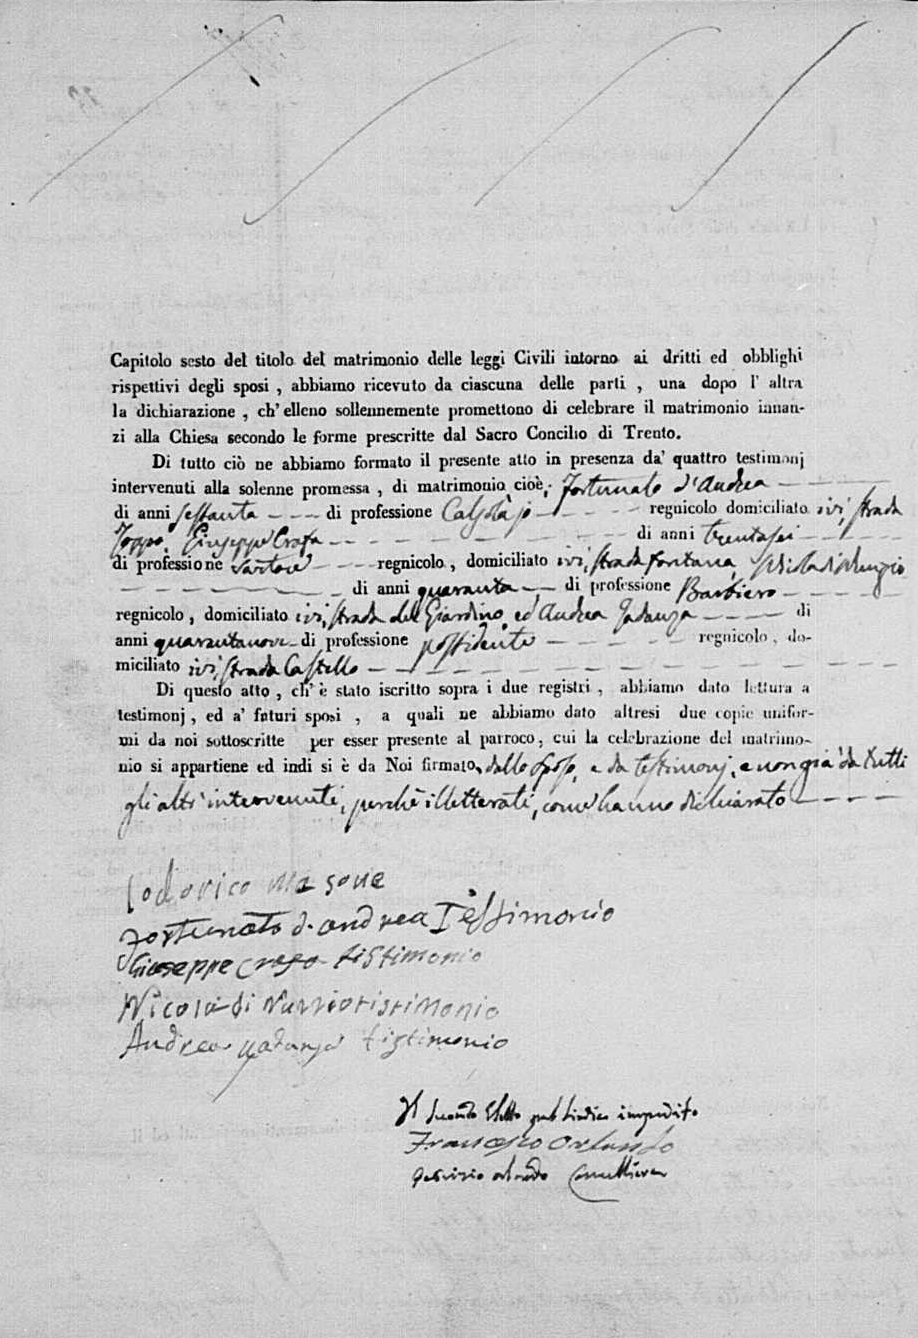 Capitolo sesto del titolo del matrimonio delle leggi Civili intorno ai dritti ed obblighi
rispettivi degli sposi, abbiamo ricevuto da ciascuna delle parti, una dopo l'altra
la dichiarazione, ch'elleno sollennemente promettono di celebrare il matrimonio innan-
zi alla Chiesa secondo le forme prescritte dal Sacro Concilio di Trento.
Di tutto ciò ne abbiamo formato il presente atto in presenza da' quattro testimonj
intervenuti alla solenne promessa, di matrimonio cioè; Fortunato d'Andrea
di anni sessanta di professione Calzolajo regnicolo domiciliato ivi, strada
Toppo, Giuseppe Crafa di anni trentasei
di professione Sartore regnicolo, domiciliato ivi, strada Fontana, Nicola di Nunzio
di anni quaranta di professione Barbiero
regnicolo, domiciliato ivi, strada del Giardino, ed Andrea Jadanza di
anni quarantanove di professione possidente regnicolo, do-
miciliato ivi, strada Castello
Di questo atto, ch'è stato iscritto sopra i due registri, abbiamo dato lettura a
testimonj, ed a' futuri sposi, a quali ne abbiamo dato altresi due copie unifor-
mi da noi sottoscritte per esser presente al parroco, cui la celebrazione del matrimo-
nio si appartiene ed indi si è da Noi firmato, dallo sposo, e da testimonj, e non già da tutti
gli altri intervenuti, perchè illetterati, come hanno dichiarato
Lodovico Masone
Fortunato d. andrea Testimonio
Giuseppe Crafa tistimonio
Nicola di Nunzio tistimonio
Andrea Jadanza tistimonio
Il Secondo Eletto pel Sindico impedito
Francesco Orlando
Orlando Cancelliere